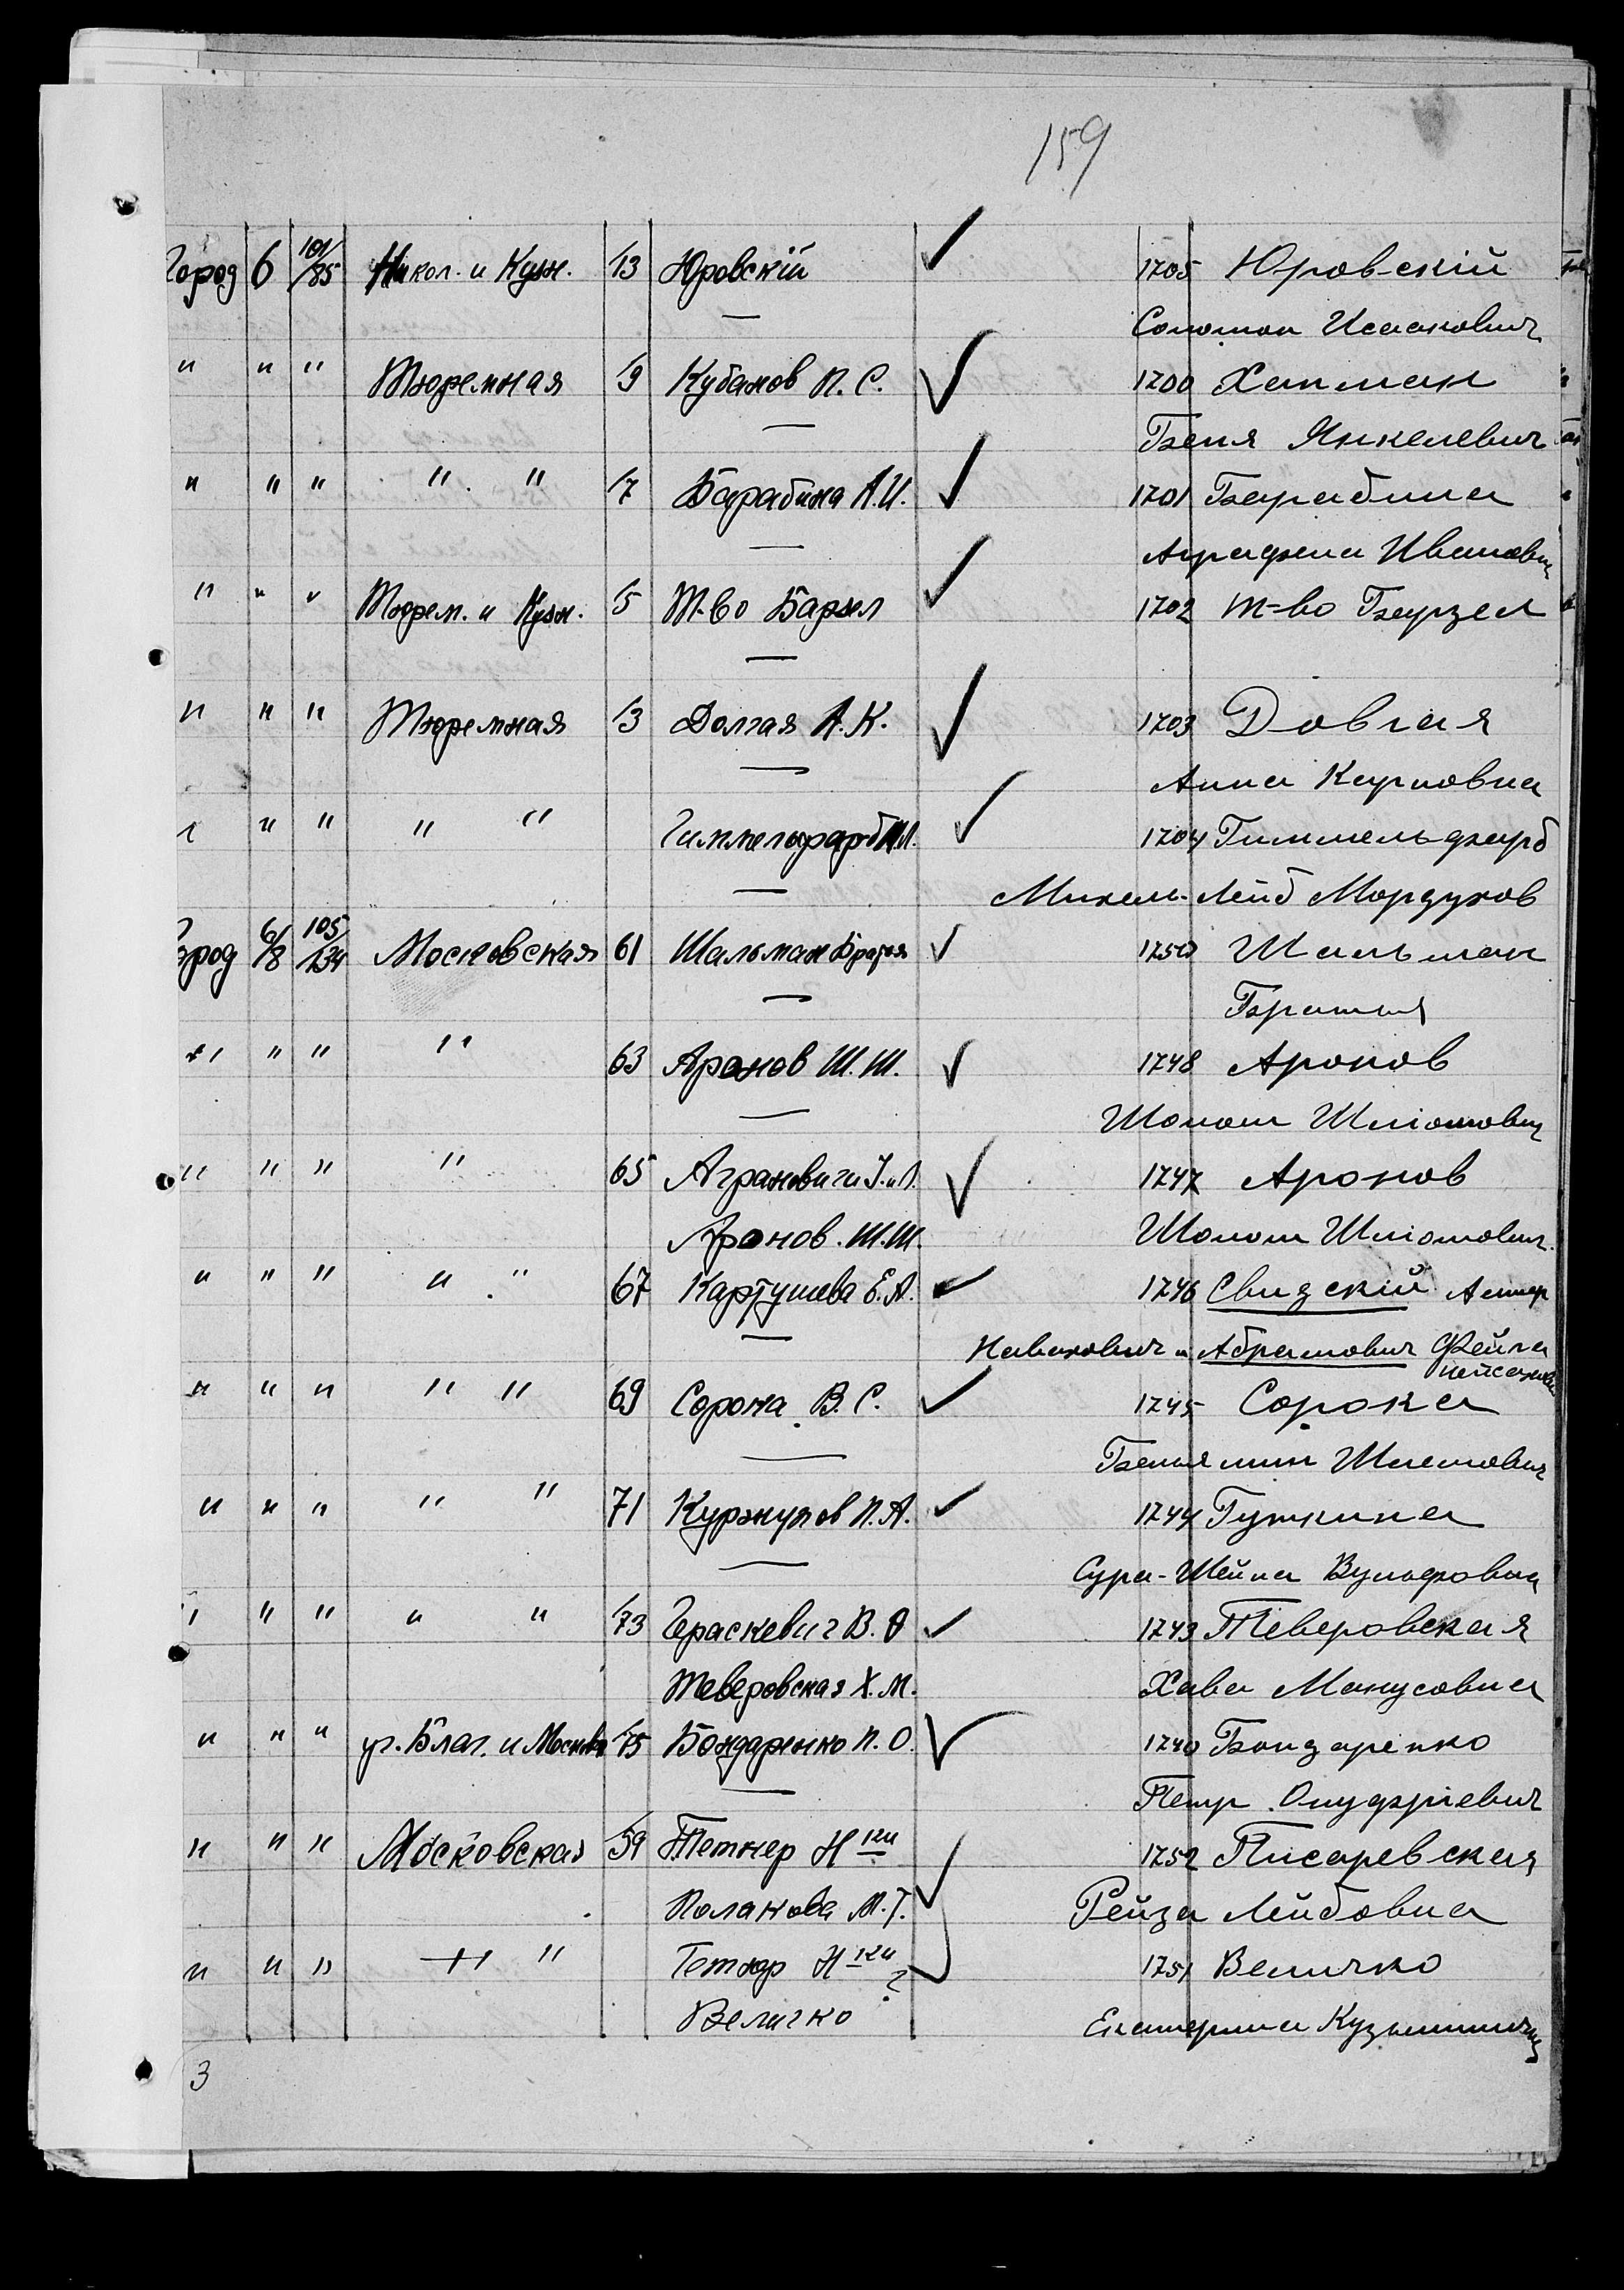 159
Город 6 101/85 Никол. и Кузн. 13 Юровскій 1705 Юровскій
Соломон Исаакович
" " " Тюремная 9 Кубанов П. С. 1700 Хапман
Беня Янкелевич
" " " " " 7 Барабина А. И. 1701 Барабина
Аграфена Иванов
" " " Тюрем. и Кузн. 5 Т-во Барзел 1702 т-во Барзел
" " " Тюремная 3 Долгая А. К. 1703 Довгая
Анна Карповна
" " " " " Гиммельфарб М.Л. 1704 Гиммельфарб
Михель-Лейб Мордухов
Город 6/8 105/134 Московская 61 Шальман Братья 1750 Шальман
Братья
" " " " 63 Аронов Ш. Ш. 1748 Аронов
Шолом Шліомович
" " " " 65 Аграновичи І. и Л. 1747 Аронов
Аронов. Ш. Ш. Шолом Шліомович.
" " " " " 67 Картушева Е. А. 1746 Свидскій
и Абрамович Фейга
" " " " " 69 Сорока В. С. 1745 Сорока
Беньямин Шлемович
" " " " " 71 Куржупов П. А. 1744 Гуткина
Сура-Шейна Вульфовна
" " " " " 73 Гераскевич В. Ѳ 1743 Теверовская
Теверовская Х. М. Хава Манусовна
" " " уг. Благ. и Москов 75 Бондаренко П. О. 1740 Бондаренко
Петр Онуфріевич
" " " Московская 59 Тетнер Н-ки 1752 Писаревская
Полакова М. Г. Рейза Лейбовна
" " " " " Тетнер Н-ки ? 1751 Величко
Величко Екатерина Кузьминична
3